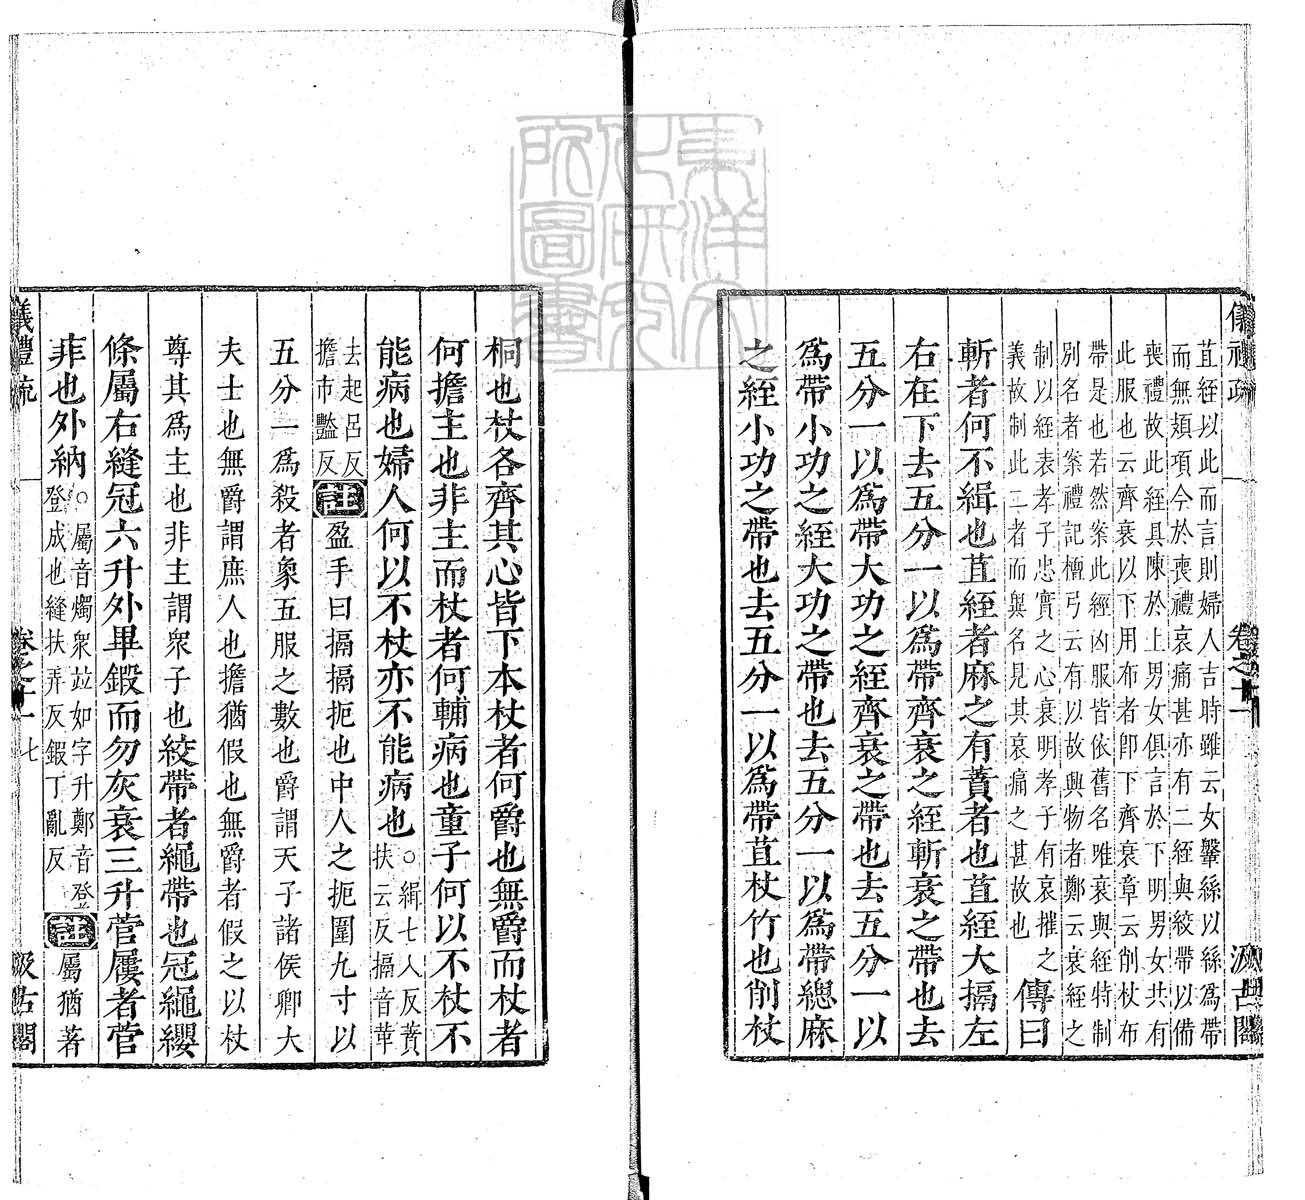 苴絰以此而言則婦人吉時雖云女鞶絲以絲爲帶
而無頍項今於喪禮哀痛甚亦有二絰與絞帶以備
喪禮故此絰具陳於上男女俱言於下明男女共有
此服也云齊衰以下用布者卽下齊衰章云削杖布
帶是也若然案此經凶服皆依舊名唯衰與絰特制
別名者案禮記檀弓云有以故興物者鄭云衰絰之
制以絰表孝子忠實之心衰明孝子有哀摧之
義故制此二者而與名見其哀痛之甚故也
傳曰
斬者何不緝也苴絰者麻之有蕡者也苴絰大搹左
右在下去五分一以爲帶齊衰之絰斬衰之帶也去
五分一以爲帶大功之絰齊衰之帶也去五分一以
爲帶小功之絰大功之帶也去五分一以爲帶總麻
之絰小功之帶也去五分一以爲帶苴杖竹也削杖
桐也杖各齊其心皆下本杖者何爵也無爵而杖者
何擔主也非主而杖者何輔病也童子何以不杖不
能病也婦人何以不杖亦不能病也
○緝七入反蕡
扶云反搹音革
去起呂反
擔市豔反
註
盈手曰搹搹扼也中人之扼圍九寸以
五分一爲殺者象五服之數也爵謂天子諸侯卿大
夫士也無爵謂庶人也擔猶假也無爵者假之以杖
尊其爲主也非主謂衆子也絞帶者繩帶也冠繩纓
條屬右縫冠六升外畢鍛而勿灰衰三升菅屨者菅
菲也外納
○屬音燭衆竝如字升鄭音登
登成也縫扶弄反鍛丁亂反
註
屬猶著
儀禮疏
卷之十一
七
汲古閣